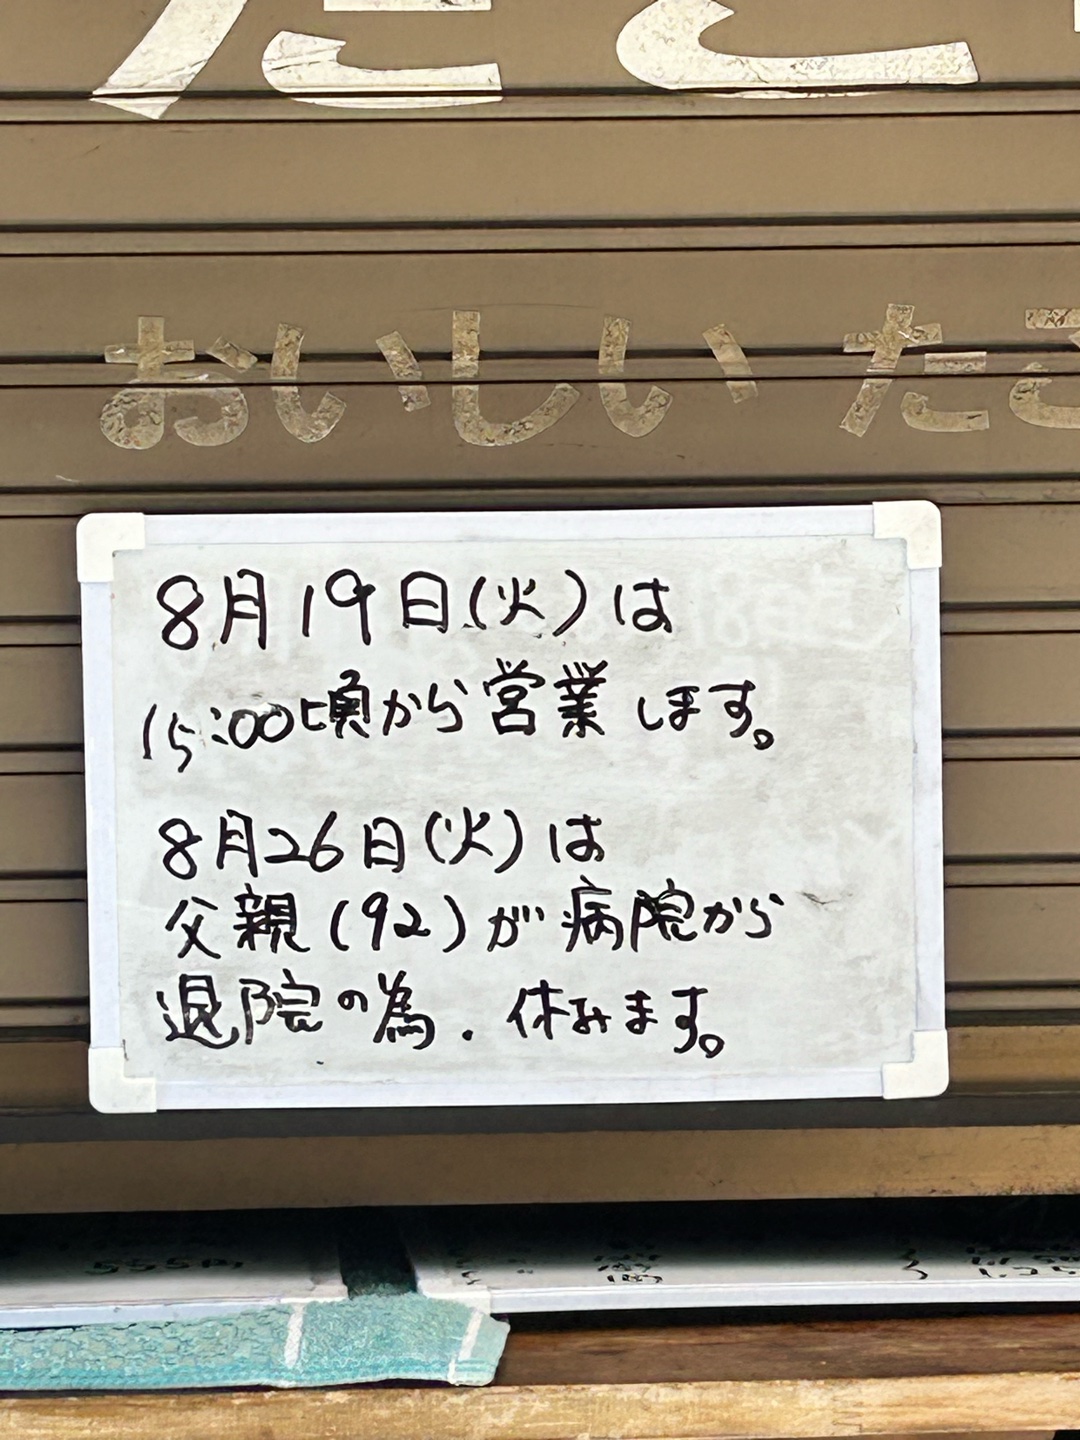 おいしい たこ
8月19日(火)は
15:00頃から営業します。
8月26日(火)は
父親(92)が病院から
退院の為.休みます。